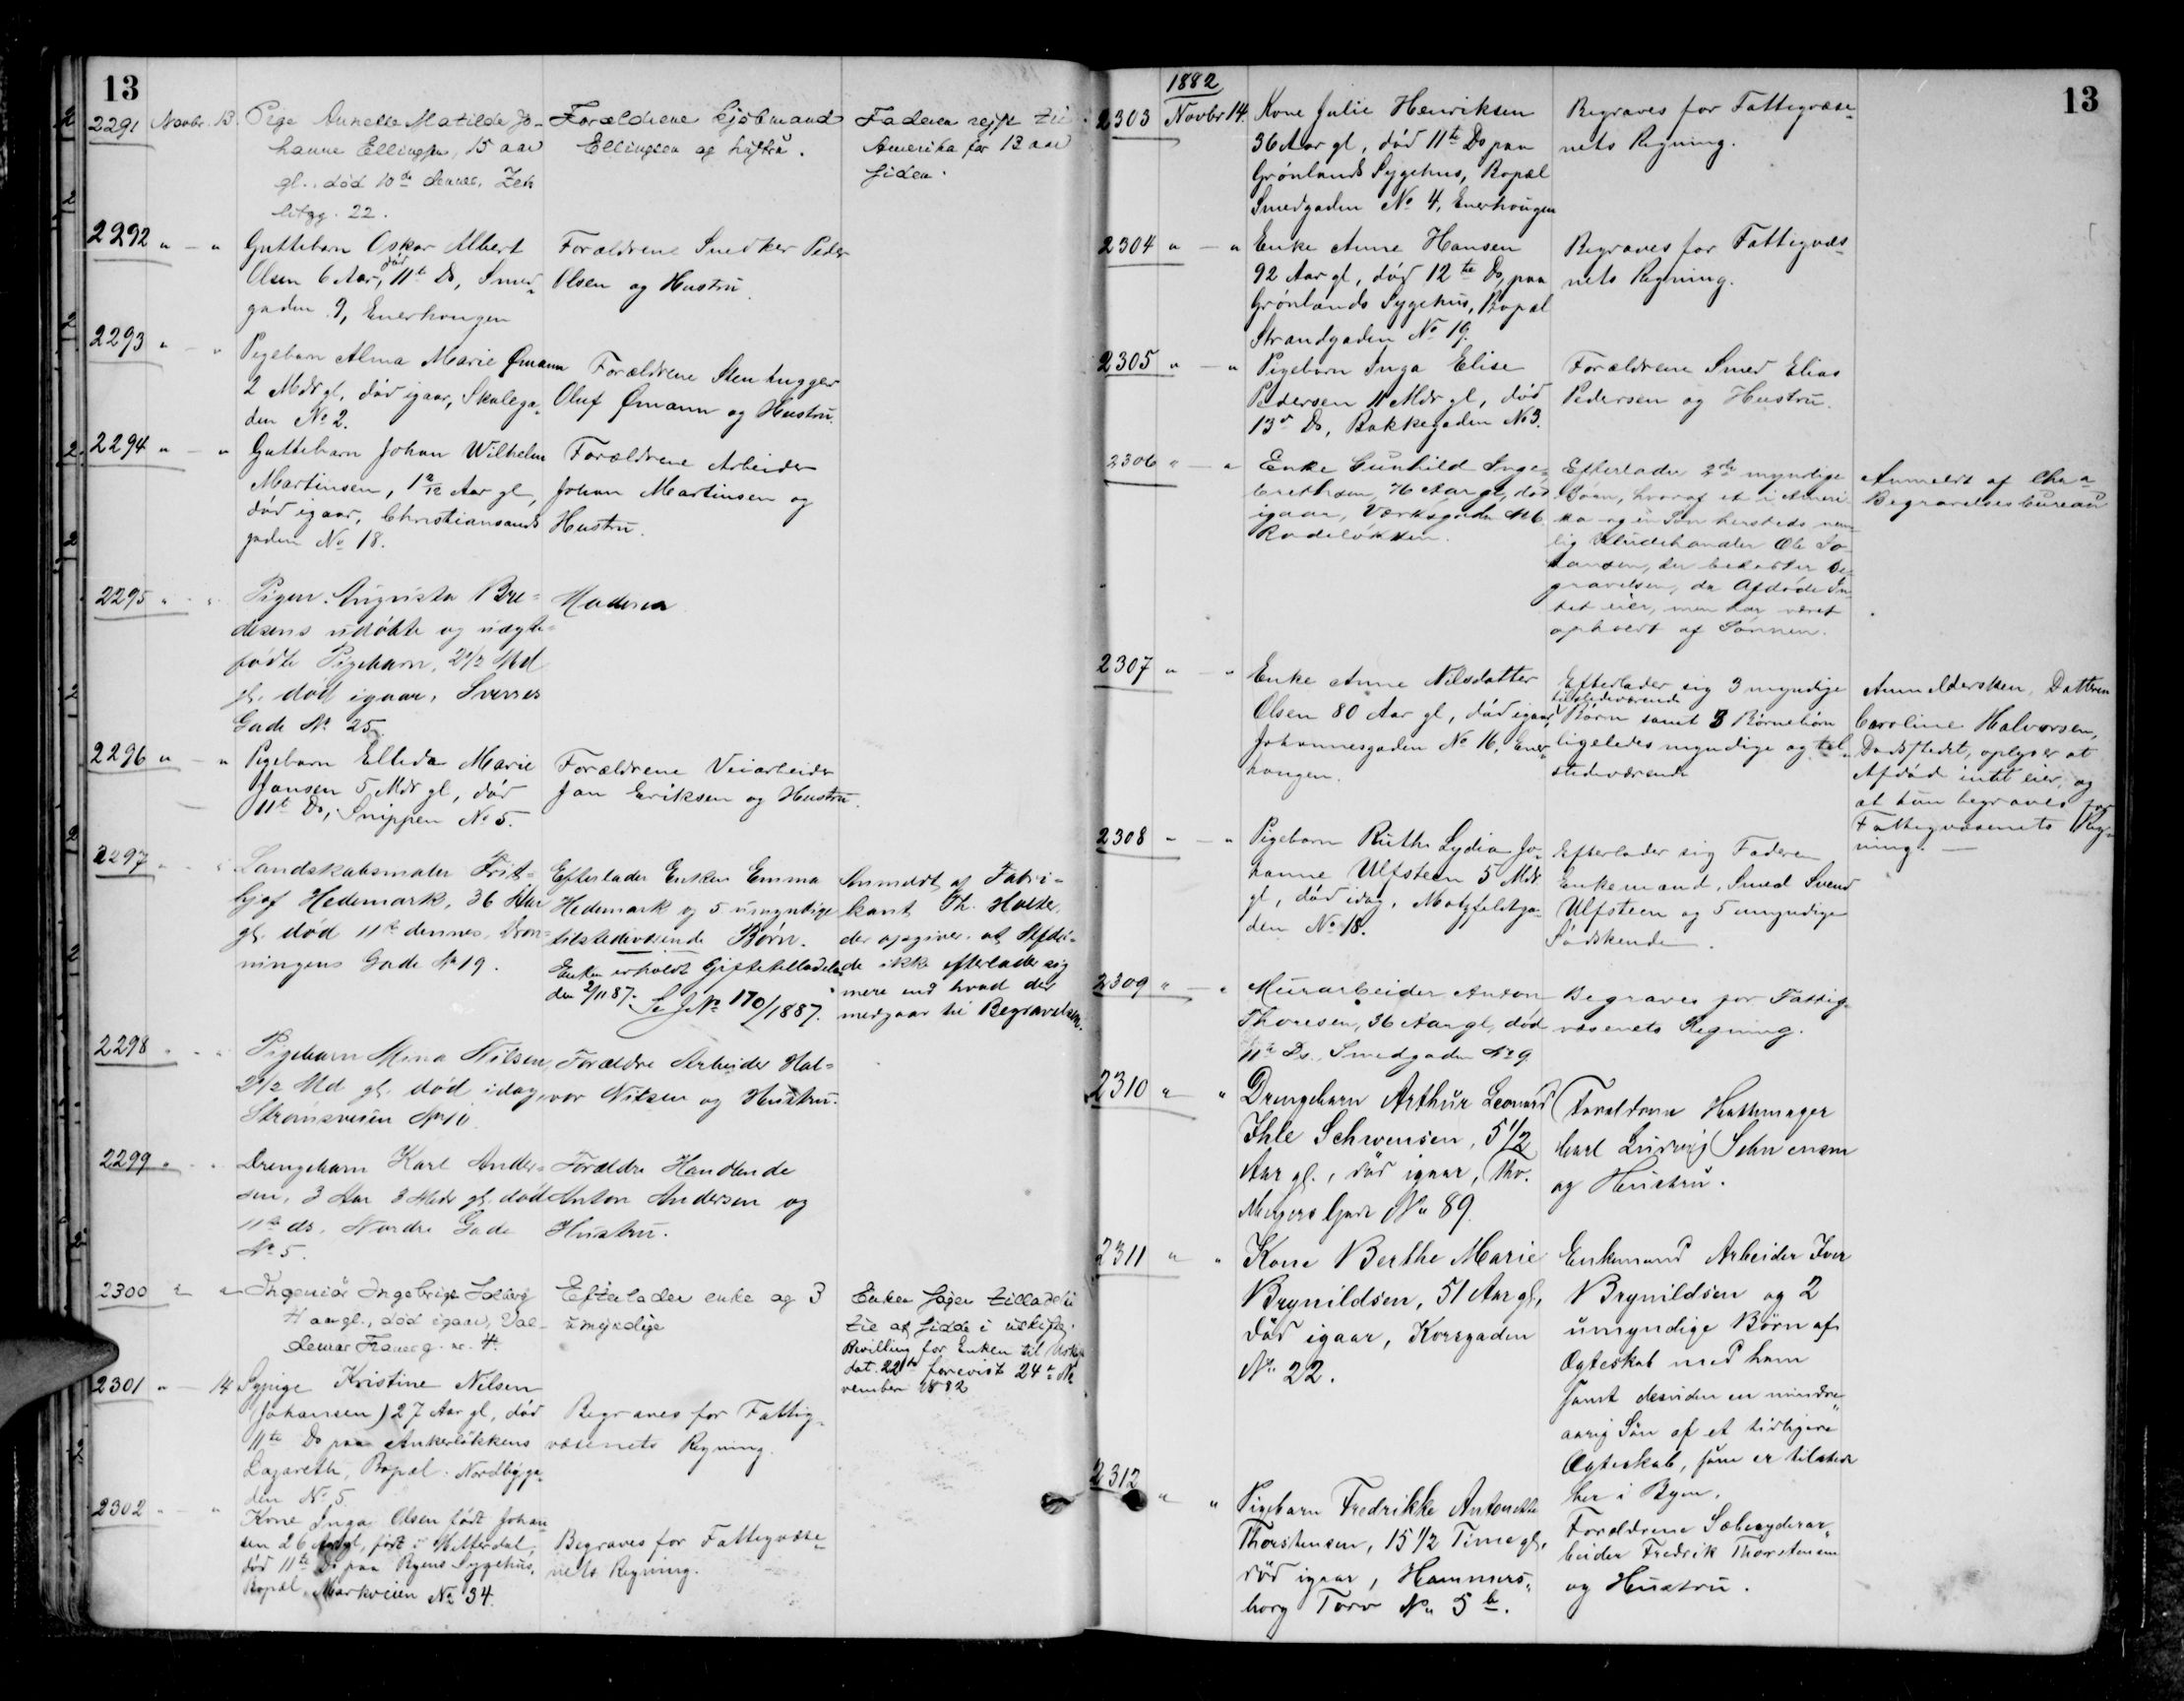 13
2291 Novbr. 13. Pige Annette Matilde Jo-
hanne Ellingsen, 15 aar
gl., död 10de dennes,
22.
Forældrene Kjöbmand
Ellingsen og hustru.
Faderen rejst til
Amerika for 13 aar
siden.
2292 " — " Guttebarn Oskar Albert
Olsen 6 Aar, död 11te Ds, Smed-
gaden 9, Enerhougen
Forældrene Snedker Peder
Olsen og Hustru
2293 " — " Pigebarn Alma Marie Ømann
2 Mdr gl, död igaar, Skolega-
den No 2.
Forældrene Stenhugger
Oluf Ømann og Hustru.
2294 " — " Guttebarn Johan Wilhelm
Martinsen, 1 2/12 Aar gl,
död igaar, Christiansands
gaden No 18.
Forældrene Arbeider
Johan Martinsen og
Hustru.
2295 " - " Pigen Augusta Bre-
desens udöbte og uægte-
födte Pigebarn, 2 1/2 Md
gl. död igaar, Sverres
Gade No 25.
Moderen
2296 " — " Pigebarn Ellida Marie
Jansen 5 Mdr gl, död
11te Ds, Snippen No 5.
Forældrene Veiarbeider
Jan Eriksen og Hustru.
2297 " " Landskabsmaler Frit-
hjof Hedemark, 36 Aar
gl. död 11te dennes, Dron-
ningens Gade No 19.
Efterlader Enken Emma
Hedemark og 5 umyndige
tilstedeværende Börn.
Enken erholdt Giftetilladelse
den 2/11 87. Se J No 170/1887.
Anmeldt af Fabri-
kant Th. Holter,
der opgiver, at Afdö-
de ikke efterlader sig
mere end hvad der
medgaar til Begravelsen.
2298 " - " Pigebarn Mina Nilsen
2 1/2 Md gl. död idag,
Strömsveien No 10
Forældre Arbeider Hal-
vor Nilsen og Hustru.
2299 " - " Drengebarn Karl Ander-
sen, 3 Aar 3 Mdr gl. död
11te ds. Nordre Gade
No 5.
Forældre Handlende
Anton Andersen og
Hustru.
2300 " " Ingeniör Ingebrigt
aar gl., död igaar,
g. nr. 4.
Efterlader enke og 3
umyndige
Enken söger tilladelse
til at sidde i uskifte.
Bevilling for Enken til Uskifte
dat. 22de forevist 24de No-
vember 1882
2301 " — 14 Sypige Kristine Nilsen
(Johansen) 27 Aar gl, död
11te Ds paa Ankerlökkens
Lazareth, Bopæl Nordbyga-
den No 5
Begraves for Fattig-
væsenets Regning.
2302 " — " Kone Inga Olsen födt Johan-
sen 26 Aar gl, födt i Hitterdal,
död 11te Ds paa Byens Sygehus,
Bopæl Markveien No 34.
Begraves for Fattigvæse-
nets Regning.
13
1882
2303 Novbr 14. Kone Julie Henriksen
36 Aar gl, död 11te Ds paa
Grönlands Sygehus, Bopæl
Smedgaden No 4, Enerhougen
Begraves for Fattigvæse-
nets Regning.
2304 " — " Enke Anne Hansen
92 Aar gl, död 12te Ds, paa
Grönlands Sygehus, Bopæl
Strandgaden No 19.
Begraves for Fattigvæs-
nets Regning.
2305 " — " Pigebarn Inga Elise
Pedersen 11 Mdr gl, död
13de Ds, Bakkegaden No 3.
Forældrene Smed Elias
Pedersen og Hustru.
2306 " — " Enke Gunhild Inge-
brethsen, 76 Aar gl, död
igaar, Værksgaden No 6
Rodelökken.
Efterlader 2de myndige
Börn, hvoraf et i Ameri-
ka og en Sön hersteds nem-
lig Kludehandler Ole Jo-
hansen, der bekoster Be-
gravelsen, da Afdöde In-
tet eier, men har været
opholdt af Sönnen.
Anmeldt af Chr a
Begravelsesbureau
2307 " — " Enke Anne Nilsdatter
Olsen 80 Aar gl, död igaar,
Johannesgaden No 16, Ener-
hougen.
Efterlader sig 3 myndige
tilstedeværende
Börn samt 3 Börnebörn
ligeledes myndige og til-
stedeværende
Anmeldersken, Datteren
Caroline Halvorsen,
Dödsstedet, oplyser at
Afdöd intet eier, og
at hun begraves for
Fattigvæsenets Reg-
ning. —
2308 " — " Pigebarn Ruth Lydia Jo-
hanne Ulfsteen 5 Mdr
gl, död idag, Motzfeldtga-
den No 18.
Efterlader sig Faderen
Enkemand, Smed Svend
Ulfsteen og 5 umyndige
Södskende.
2309 " — " Murarbeider Anton
Thoresen, 36 Aar gl, död
11te Ds. Smedgaden No 9
Begraves for Fattig-
væsenets Regning.
2310 " " Drengebarn Arthur Leonard
Ihle Schwensen, 5 1/2
Aar gl., död igaar, Thv.
Meyers Gade No 89.
Forældrene Hattemager
Carl Ludvig Schwensen
og Hustru.
2311 " " Kone Berthe Marie
Brynildsen, 51 Aar gl,
död igaar, Korsgaden
No 22.
Enkemand Arbeider Iver
Brynildsen og 2
umyndige Börn af
Ægteskab med ham
samt desuden en mindre-
aarig Sön af et tidligere
Ægteskab, som er tilstede
her i Byen.
2312 " " Pigebarn Fredrikke Antonette
Thorstensen, 15 1/2 Time gl,
död igaar, Hammers-
borg Torv No 5 b.
Forældrene Sæbesyderar-
beider Fredrik Thorstensen
og Hustru.